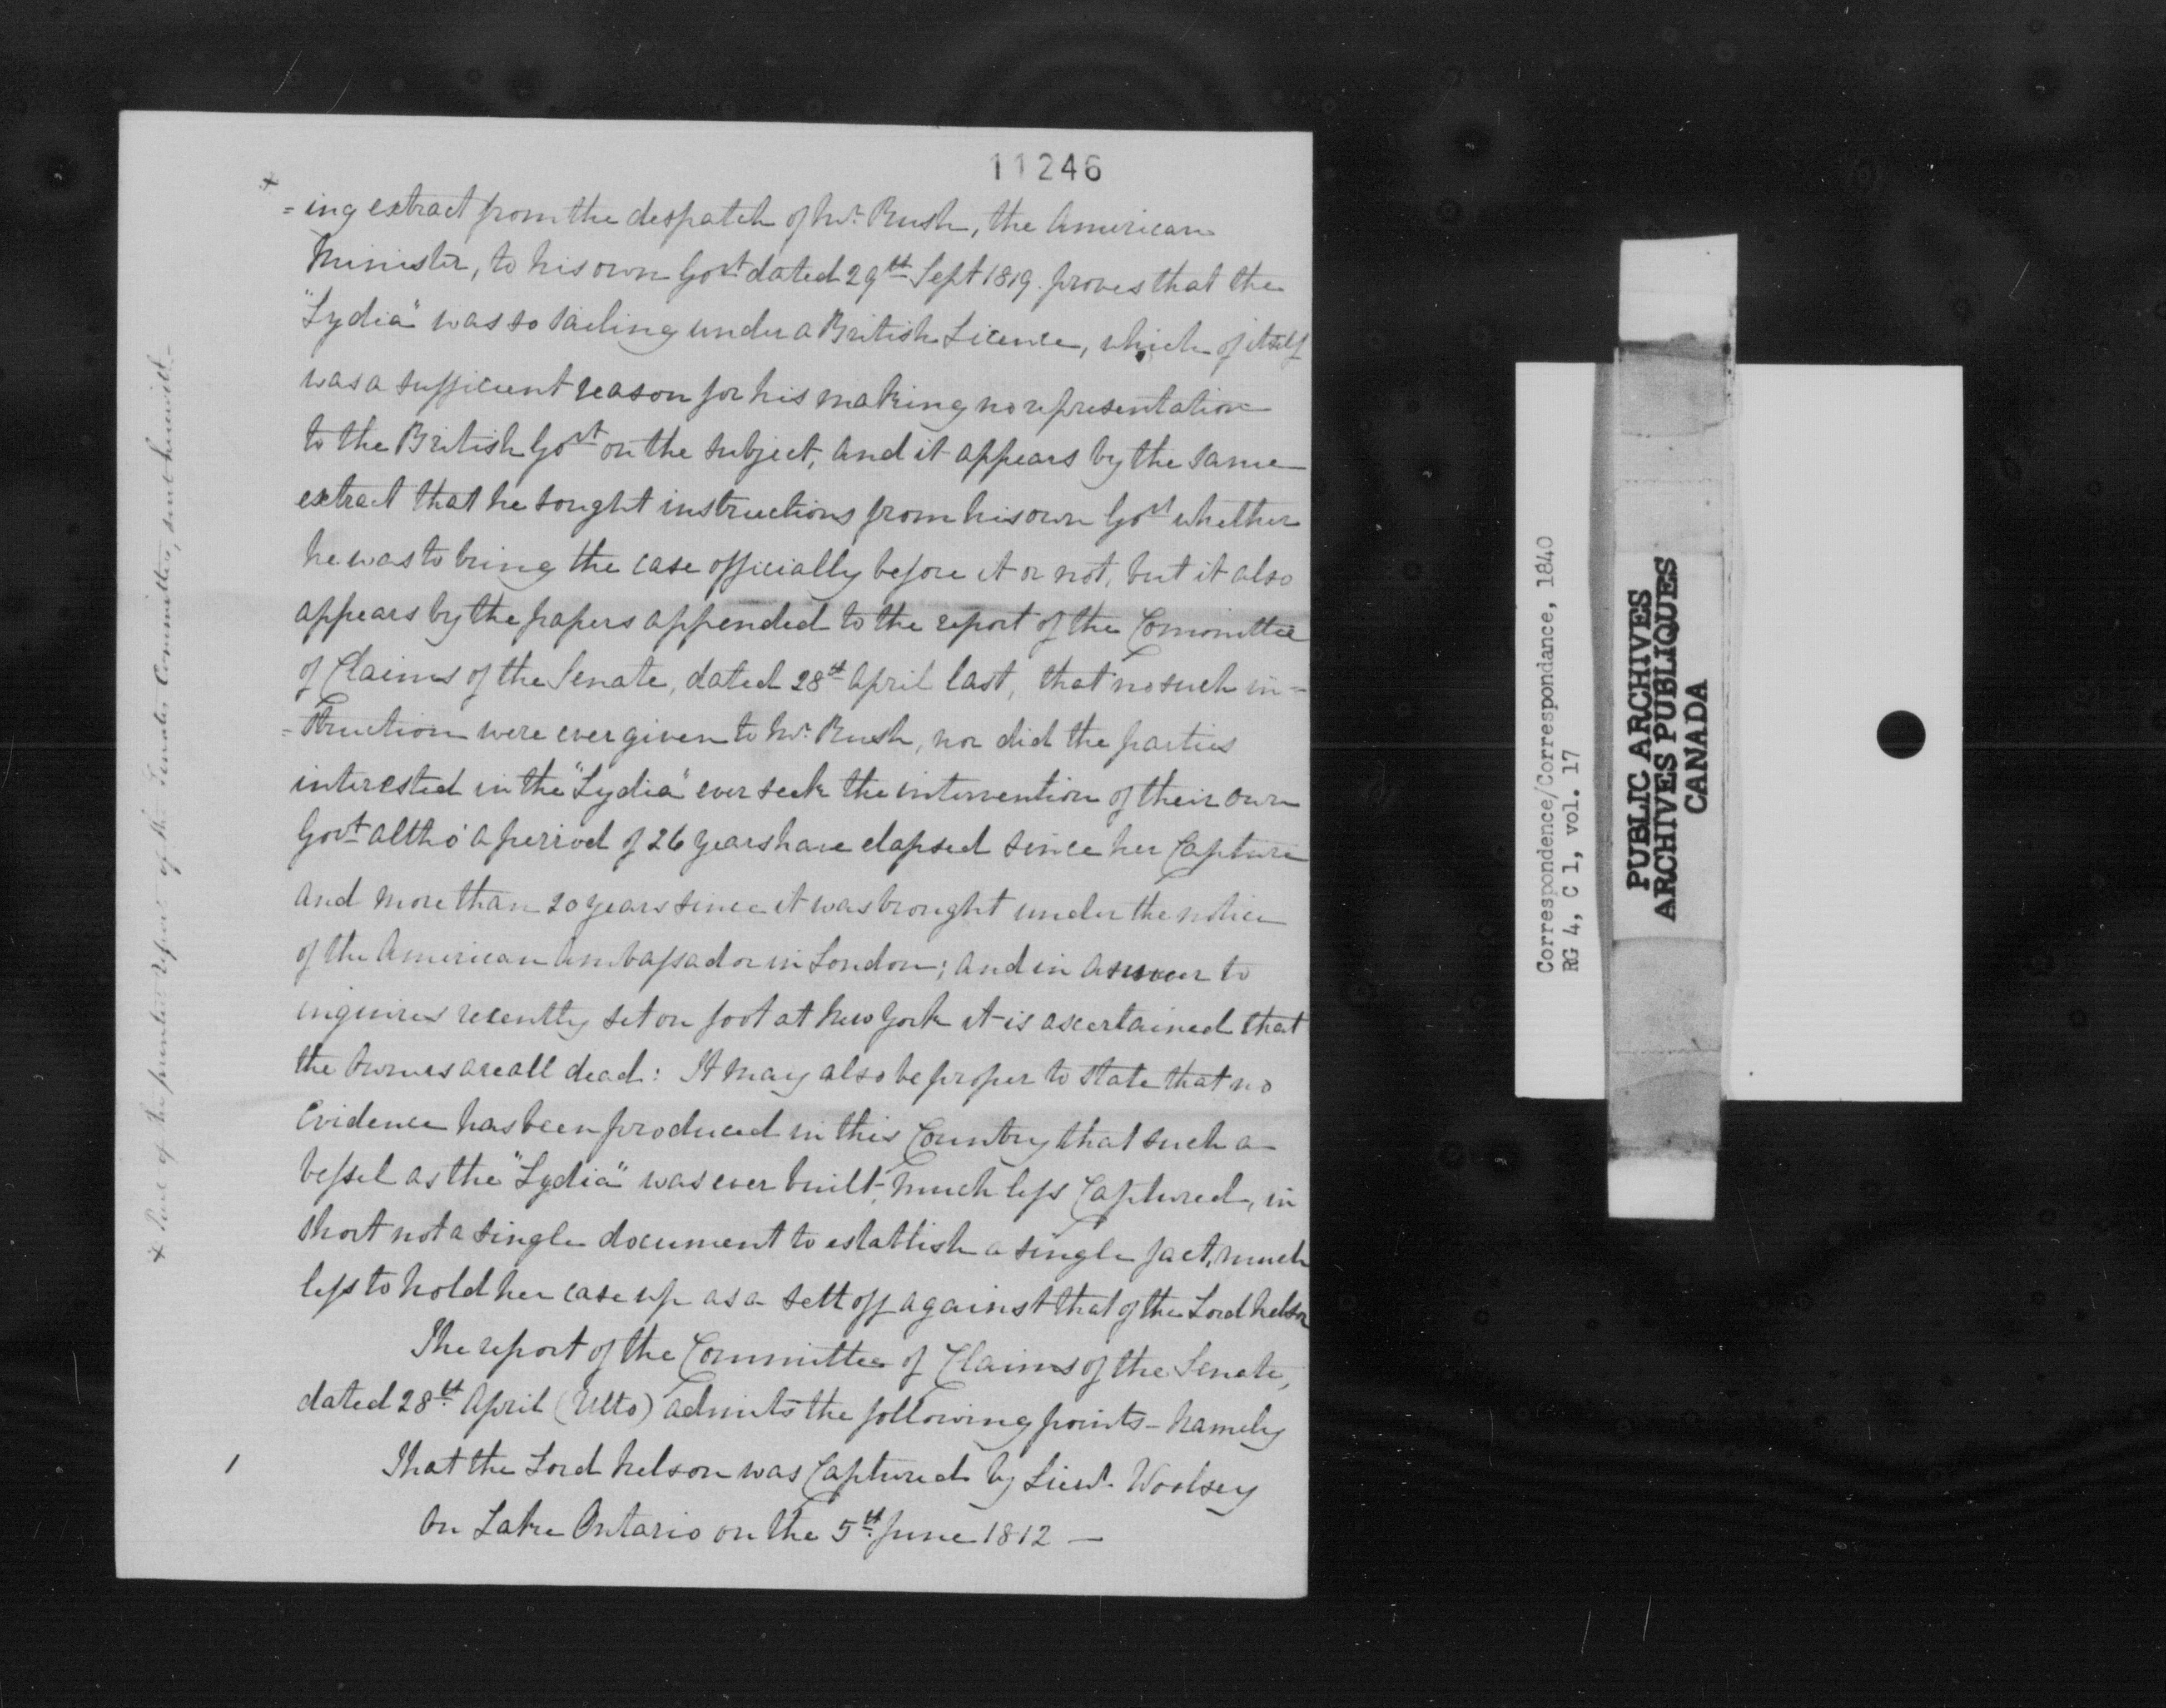 11246
+
=ing extract from the despatch of Mr. Rush, the American
Minister, to his own Govt dated 29th Sept 1819. proves that the
"Lydia" was so sailing under a British Licence, which of itself
was a sufficient reason for his making no representation
to the British Govt on the subject, and it appears by the same
extract that he sought instructions from his own Govt whether
he was to bring the case officially before it or not, but it also
appears by the papers appended to the report of the Committee
of Claims of the Senate, dated 28th April last, that no such in=
=struction were ever given to Mr. Rush, nor did the parties
interested in the "Lydia" ever seek the intervention of their own
Govt altho' a period of 26 years have elapsed since her Capture
and more than 20 years since it was brought under the notice
of the American Ambassador in London; and in answer to
inquiries recently set on foot at New York it is ascertained that
the Owners are all dead: It may also be proper to state that no
Evidence has been produced in this Country that such a
vessel as the "Lydia" was ever built, much less Captured, in
short not a single document to establish a single fact, much
less to hold her case up as a sett off against that of the Lord Nelson
The report of the Committee of Claims of the Senate,
dated 28th April (Ulto) admits the following points - Namely
1 That the Lord Nelson was Captured by Lieut. Woolsey
on Lake Ontario on the 5th June 1812 —
+ of the printed report of the Senates Committee, sent herewith -
Correspondence/Correspondance, 1840
RG 4, C 1, vol. 17
PUBLIC ARCHIVES
ARCHIVES PUBLIQUES
CANADA